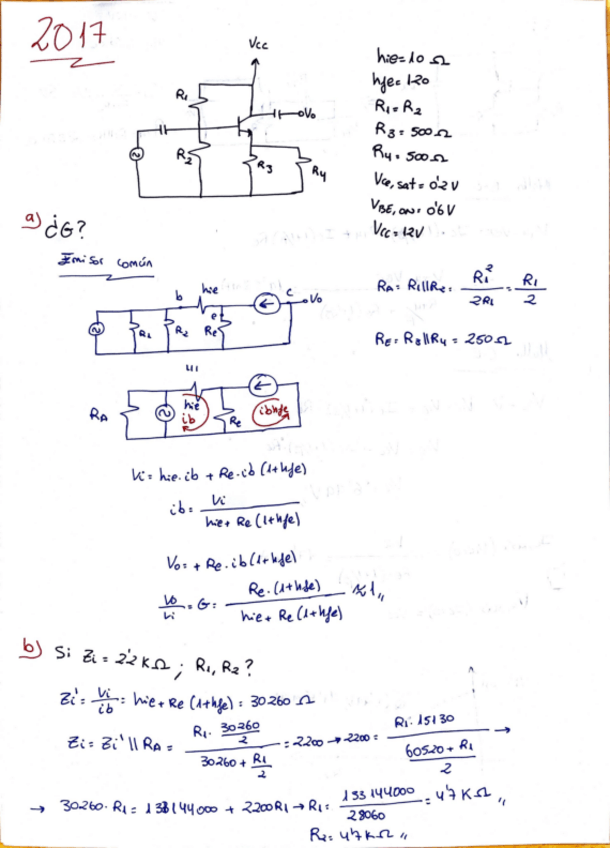 2017
Vcc
R1
Vo
R2
R3
R4
hie = 10 Ω
hfe = 120
R1 = R2
R3 = 500 Ω
R4 = 500 Ω
Vce, sat = 0'2 V
VBE, ON = 0'6 V
Vcc = 12V
a) ¿G?
Emisor común
b hie c Vo
e
R1 R2 Re
RA = R1 || R2 = R1² / 2R1 = R1 / 2
RE = R3 || R4 = 250 Ω
RA hie Re
ib ib hfe
Vi = hie · ib + Re · ib (1 + hfe)
ib = Vi / hie + Re (1 + hfe)
Vo = + Re · ib (1 + hfe)
Vo / Vi = G = Re · (1 + hfe) / hie + Re (1 + hfe) ≈ 1,,
b) Si Zi = 2'2 KΩ ; R1, R2 ?
Zi' = Vi / ib = hie + Re (1 + hfe) = 30260 Ω
Zi = Zi' || RA = R1 · 30260 / 2 / 30260 + R1 / 2 = 2200 → 2200 = R1 · 15130 / 60520 + R1 / 2 →
→ 30260 · R1 = 133144000 + 2200 R1 → R1 = 133144000 / 28060 = 4'7 KΩ ,,
R2 = 4'7 KΩ ,,